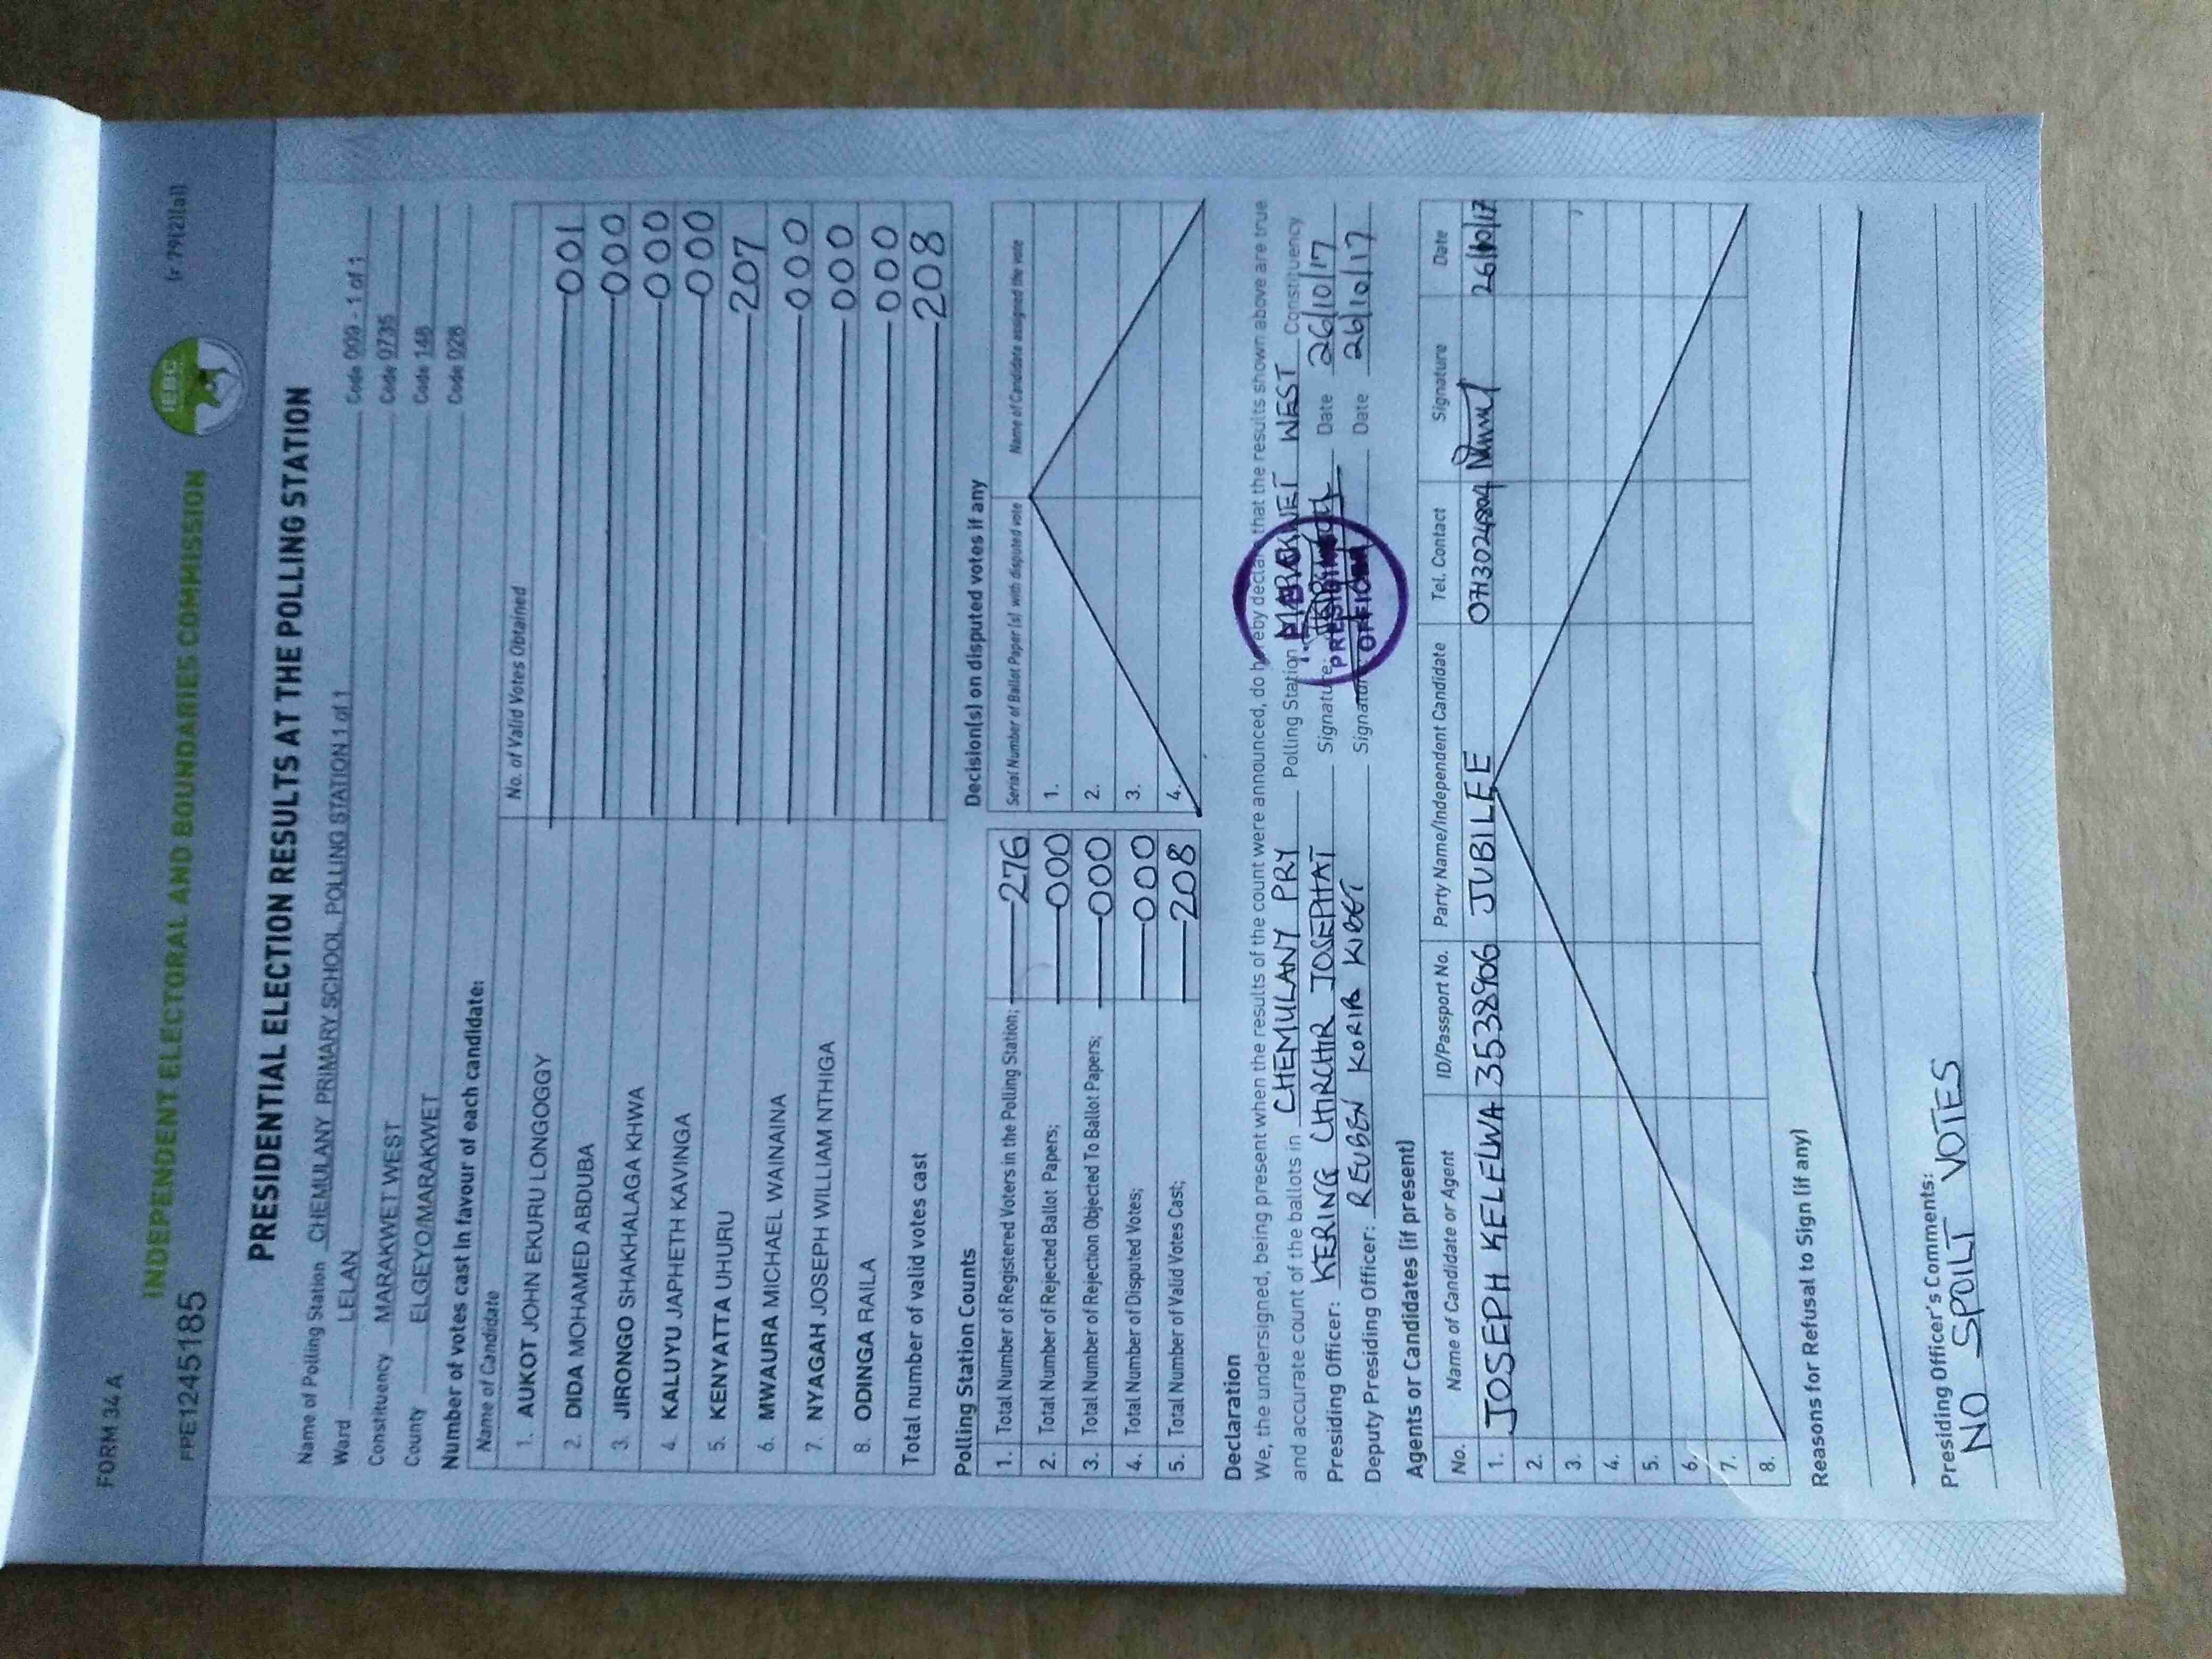 FORM 34 A
(r 79(2)(a))
INDEPENDENT ELECTORAL AND BOUNDARIES COMMISSION
IEBC
PPE1245185
PRESIDENTIAL ELECTION RESULTS AT THE POLLING STATION
Name of Polling Station CHEMULANY PRIMARY SCHOOL POLLING STATION 1 of 1 Code 009 - 1 of 1
Ward LELAN Code 0735
Constituency MARAKWET WEST Code 148
County ELGEYO/MARAKWET Code 028
Number of votes cast in favour of each candidate:
Name of Candidate No. of Valid Votes Obtained
1. AUKOT JOHN EKURU LONGOGGY 001
2. DIDA MOHAMED ABDUBA 000
3. JIRONGO SHAKHALAGA KHWA 000
4. KALUYU JAPHETH KAVINGA 000
5. KENYATTA UHURU 207
6. MWAURA MICHAEL WAINAINA 000
7. NYAGAH JOSEPH WILLIAM NTHIGA 000
8. ODINGA RAILA 000
Total number of valid votes cast 208
Polling Station Counts
1. Total Number of Registered Voters in the Polling Station; 276
2. Total Number of Rejected Ballot Papers; 000
3. Total Number of Rejection Objected To Ballot Papers; 000
4. Total Number of Disputed Votes; 000
5. Total Number of Valid Votes Cast; 208
Decision(s) on disputed votes if any
Serial Number of Ballot Paper (s) with disputed vote Name of Candidate assigned the vote
1.
2.
3.
4.
Declaration
We, the undersigned, being present when the results of the count were announced, do hereby declare that the results shown above are true
and accurate count of the ballots in CHEMULANY PRY Polling Station MARAKWET WEST Constituency
Presiding Officer: KERING CHIRCHIR JOSEPHAT Signature: Date 26/10/17
Deputy Presiding Officer: REUBEN KORIR KIBET Signature Date 26/10/17
PRESIDING
OFFICER
Agents or Candidates (if present)
No. Name of Candidate or Agent ID/Passport No. Party Name/Independent Candidate Tel. Contact Signature Date
1. JOSEPH KELELWA 3538906 JUBILEE 0713024804 26/10/17
2.
3.
4.
5.
6.
7.
8.
Reasons for Refusal to Sign (if any)
Presiding Officer's Comments:
NO SPOILT VOTES